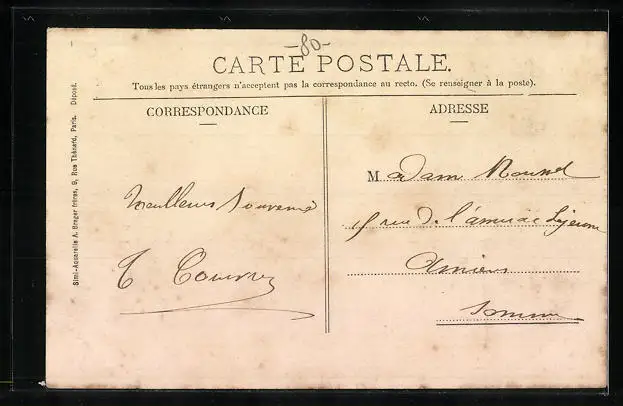 -80-
CARTE POSTALE.
Tous les pays étrangers n'acceptent pas la correspondance au recto. (Se renseigner à la poste).
CORRESPONDANCE
ADRESSE
Simi-Aquarelle A. Breger frères, 9, Rue Thénard, Paris. Déposé.
Meilleurs Souvenirs
Madam
rue de l'amiral Lejeune
Amiens
Somme